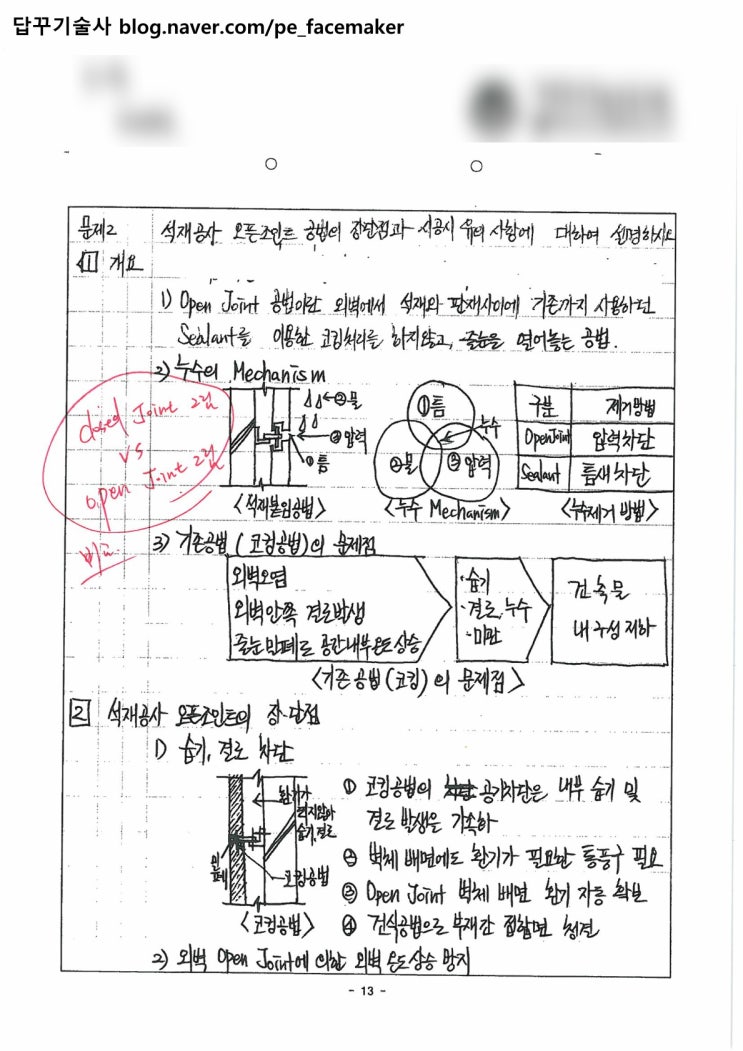 답꾸기술사 blog.naver.com/pe_facemaker
문제2 석재공사 오픈조인트 공법의 장단점과 시공시 유의 사항에 대하여 설명하시오
1 개요
1) Open Joint 공법이란 외벽에서 석재와 판재사이에 기존까지 사용하던
Sealant를 이용한 코킹처리를 하지않고, 줄눈을 열어놓는 공법.
2) 누수의 Mechanism
closed Joint 그림
vs
open Joint 그림
비교
②물
③압력
①틈
<석재붙임공법>
①틈
누수
②물
③압력
<누수 Mechanism>
구분 제거방법
Open Joint 압력차단
Sealant 틈새차단
<누수제거 방법>
3) 기존공법 (코킹공법)의 문제점
외벽오염
외벽안쪽 결로발생
줄눈 막폐로 공간내부온도상승
·습기
·결로, 누수
·미관
건축물
내구성 저하
<기존 공법(코킹)의 문제점>
2 석재공사 오픈조인트의 장·단점
1) 습기, 결로 차단
환기가
되지않아
습기, 결로
코킹공법
<코킹공법>
① 코킹공법의 공기차단은 내부 습기 및
결로 발생을 가속하
② 벽체 배면에도 환기가 필요한 통풍구 필요
③ Open Joint 벽체 배면 환기 자동 확보
④ 건식공법으로 부재간 접합면 청결
2) 외벽 Open Joint에 의한 외벽 온도상승 방지
- 13 -